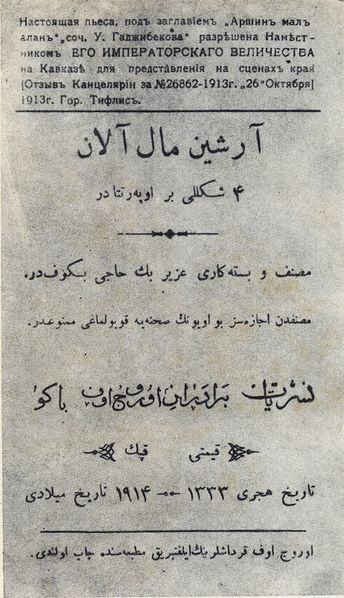 Настоящая пьеса, подъ заглавіемъ „Аршинъ малъ
аланъ“ соч. У. Гаджибекова“ разрѣшена Намѣст-
никомъ ЕГО ИМПЕРАТОРСКАГО ВЕЛИЧЕСТВА
на Кавказѣ для представленія на сценахъ края
(Отзывъ Канцеляріи за №26862-1913г. „26“ Октября)
1913г. Гор. Тифлисъ.
آرشین مال آلان
۴ شکللی بر اوپه‌رتتا در
مصنف و بسته‌کاری عزیر بك حاجی بكوف‌در.
مصنفدن اجازه‌سز بو اویونك صحنه‌یه قویولماغی ممنوعدر.
نشریات برادران اوروج اوف باكو
قیمتی قپك
تاریخ هجری ۱۳۳۳ ۱۹۱۴ تاریخ میلادی
اوروج اوف قرداشلرینك ایلقتریق مطبعه‌سنده چاپ اولندی.